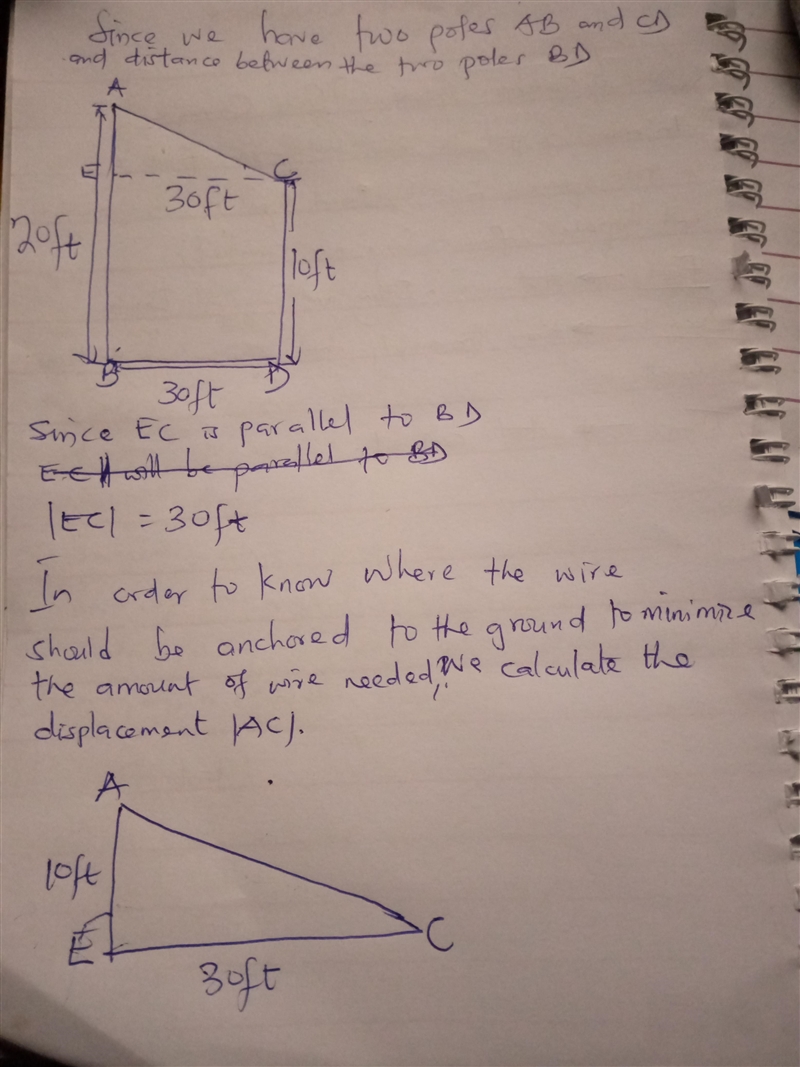 Since we have two poles AB and CD
and distance between the two poles BD
A
E
C
30ft
20ft
10ft
B
D
30ft
Since EC is parallel to BD
EC || will be parallel to BD
|EC| = 30ft
In order to know where the wire
should be anchored to the ground to minimize
the amount of wire needed, we calculate the
displacement |AC|.
A
10ft
E
C
30ft